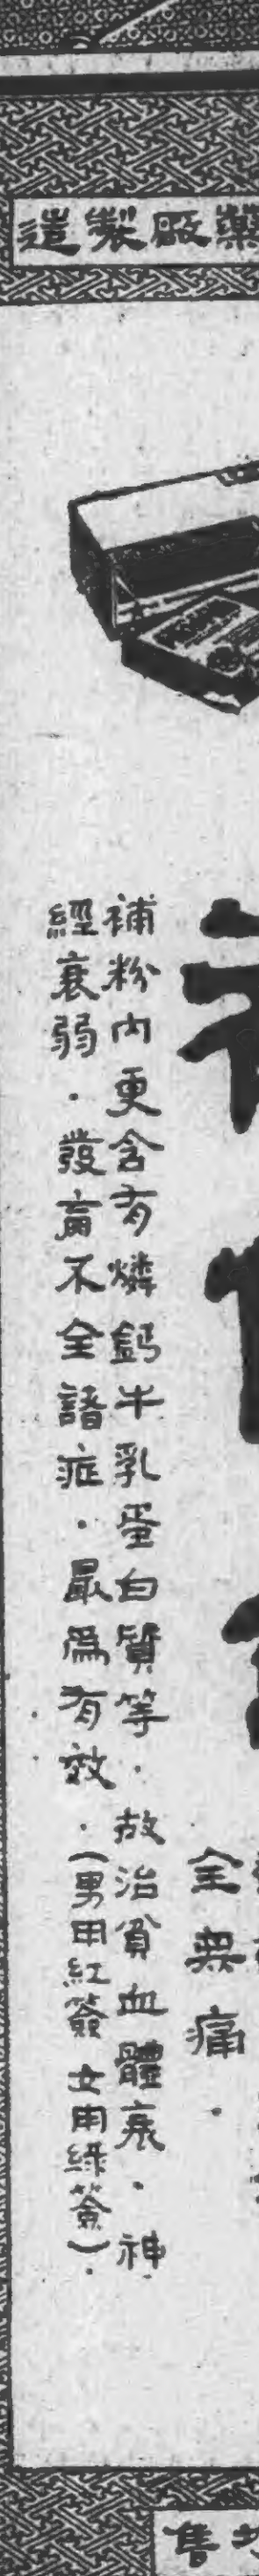 藥厰製造
全無痛．
補粉内更含有燐鈣牛乳蛋白質等．故治貧血體衰．神
經衰弱．發育不全諸症．最爲有效．（男用紅簽 女用綠簽）．
售